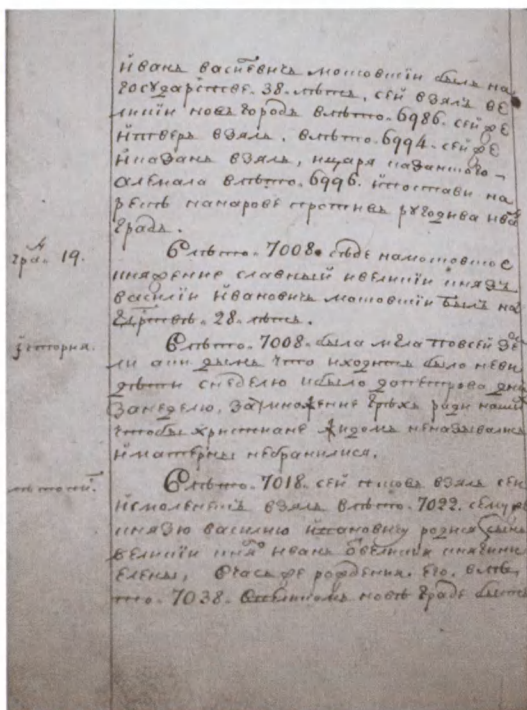 Иванъ васиевичъ мосовскіи былъ на
государстве. 38. лѣтъ, сей взялъ ве
ликіи новъ городъ влѣто. 6986. сей же
итверь взялъ. влѣто. 6994. сей же
иказань взялъ, ицаря казанского
алемала влѣто. 6996. ипостави на
рекѣ нанарове противъ ругодива ива
градъ.
гра. 19.
Влѣто. 7008. сѣде намосовское
княжение славный ивеликіи князь
василіи Ивановичъ мосовскіи былъ на
гдрствѣ. 28. лѣтъ.
їсторія.
Влѣто. 7008. была мгла повсей зе
ли аки дымъ что иходить было неви
дѣти снеделю ибыло допетрова дни
занеделю, заумножение грѣхъ ради наши
чтобы христиане жидомъ неназывалися
иматерны небранилися.
Влѣто. 7018. сей псковъ взялъ сей
исмоленескъ взялъ влѣто. 7022. сему
князю василию ивановичу родися сынъ
великіи кня иванъ ѿвеликия княгини
елены, Вчасъ же рождения. его. влѣ
то. 7038. Ввеликомъ новѣ граде бысть